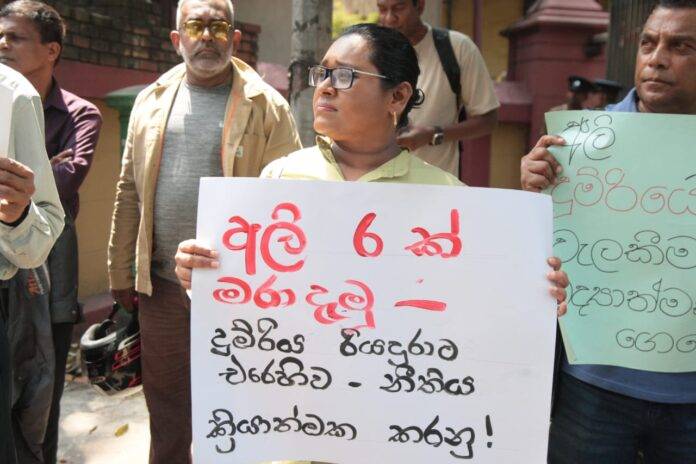 අලි 6 ක්
මරා දැමූ –
දුම්රිය රියදුරාට
එරෙහිව - නීතිය
ක්‍රියාත්මක කරනු!
අලි
දුම්රියේ
වැලකීම